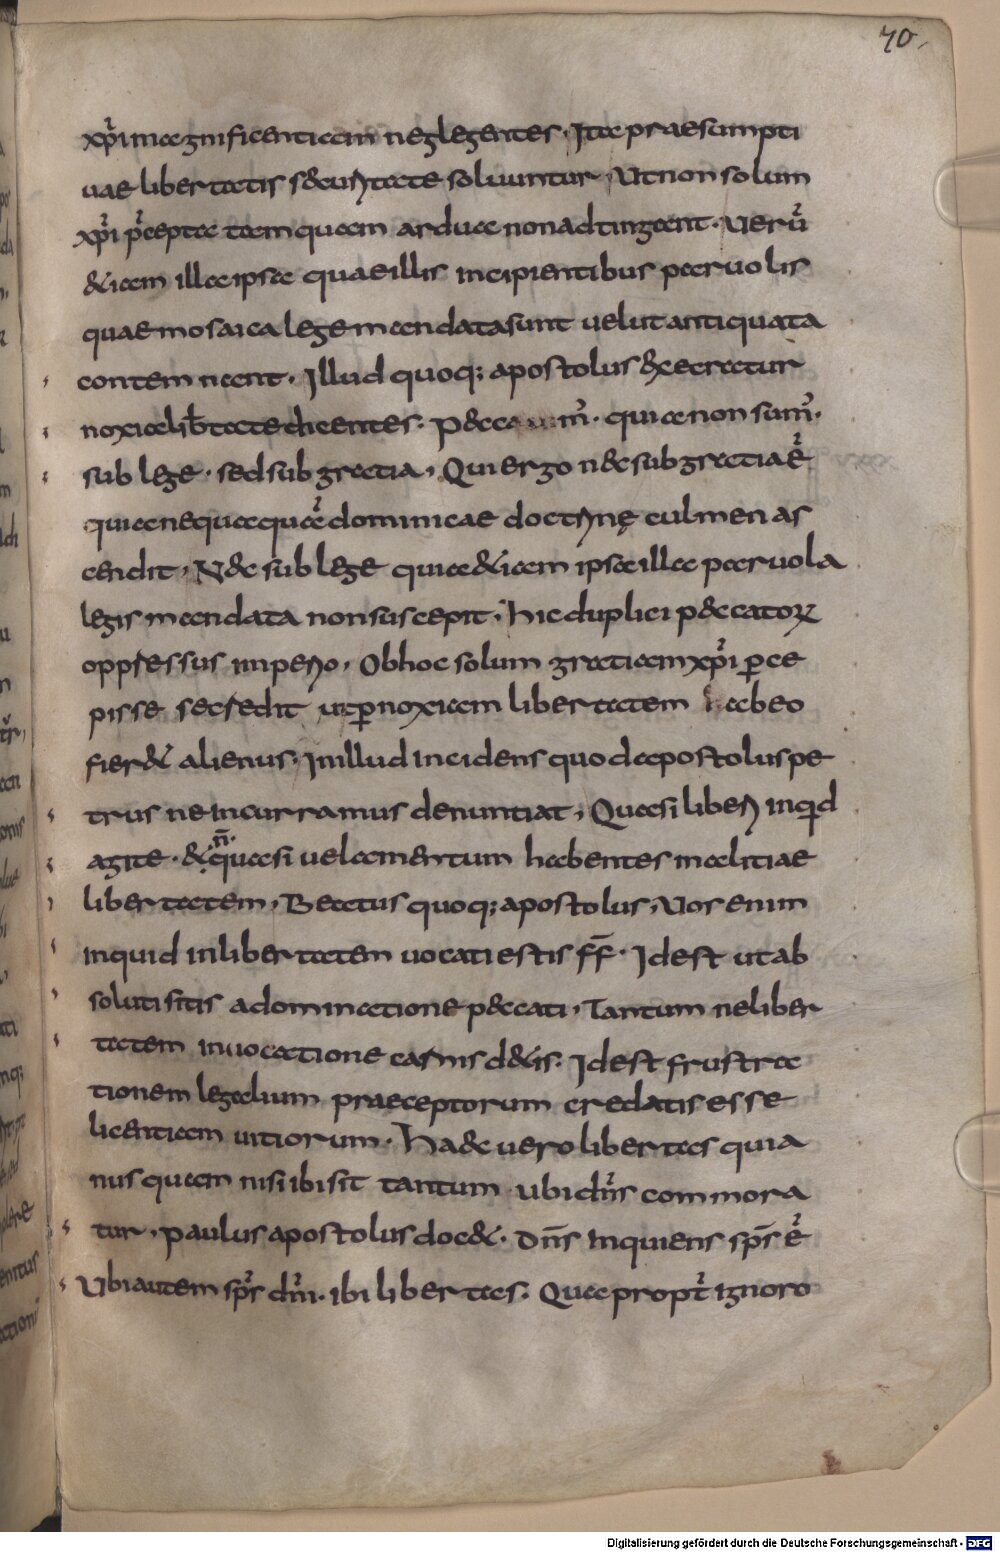 70.
xp̄i magnificentiam neglegentes. Ita praesumpti
uae libertatis securitate soluuntur. Ut non solum
xp̄i p̄cepta tamquam ardua non adtingant. Uerū
&iam illa ipsa quae illis incipientibus paruolis
quae mosaica lege mandata sunt uelut antiquata
contemnant. Illud quoq; apostolus &xecratur
noxia lib̄tate dicentes. P&ca m̄. quia non sum̄.
sub lege. sed sub gratia. Qui ergo nec sub gratia ē
quia nequaquā dominicae doctrinę culmen as
cendit. Nec sub lege quia &iam ipsa illa paruola
legis mandata non suscepit. Hic duplici peccatoꝝ
oppressus imperio. Ob hoc solum gratiam xp̄i ꝑce
pisse se credit ut ꝑ noxiam libertatem abeo
fier& alienus. In illud incidens quod apostolus pe
trus ne incurramus denuntiat. Quasi liberi inquid
agite. & n̄. quasi uelamentum habentes malitiae
libertatem. Beatus quoq; apostolus. Uos enim
inquid in libertatem uocati estis ff̄. Id est ut ab
soluti sitis a dominatione peccati. Tantum ne liber
tatem in uocatione carnis d&is. Id est frustra
tionem legalium praeceptorum credatis esse
licentiam uitiorum. Haec uero libertas quia
nusquam nisi ibi sit tantum ubi dn̄s commora
tur. paulus apostolus doc&. Dn̄s inquiens sp̄s ē
Ubi autem sp̄s dn̄i. ibi libertas. Qua propt̄ ignoro
Digitalisierung gefördert durch die Deutsche Forschungsgemeinschaft - DFG